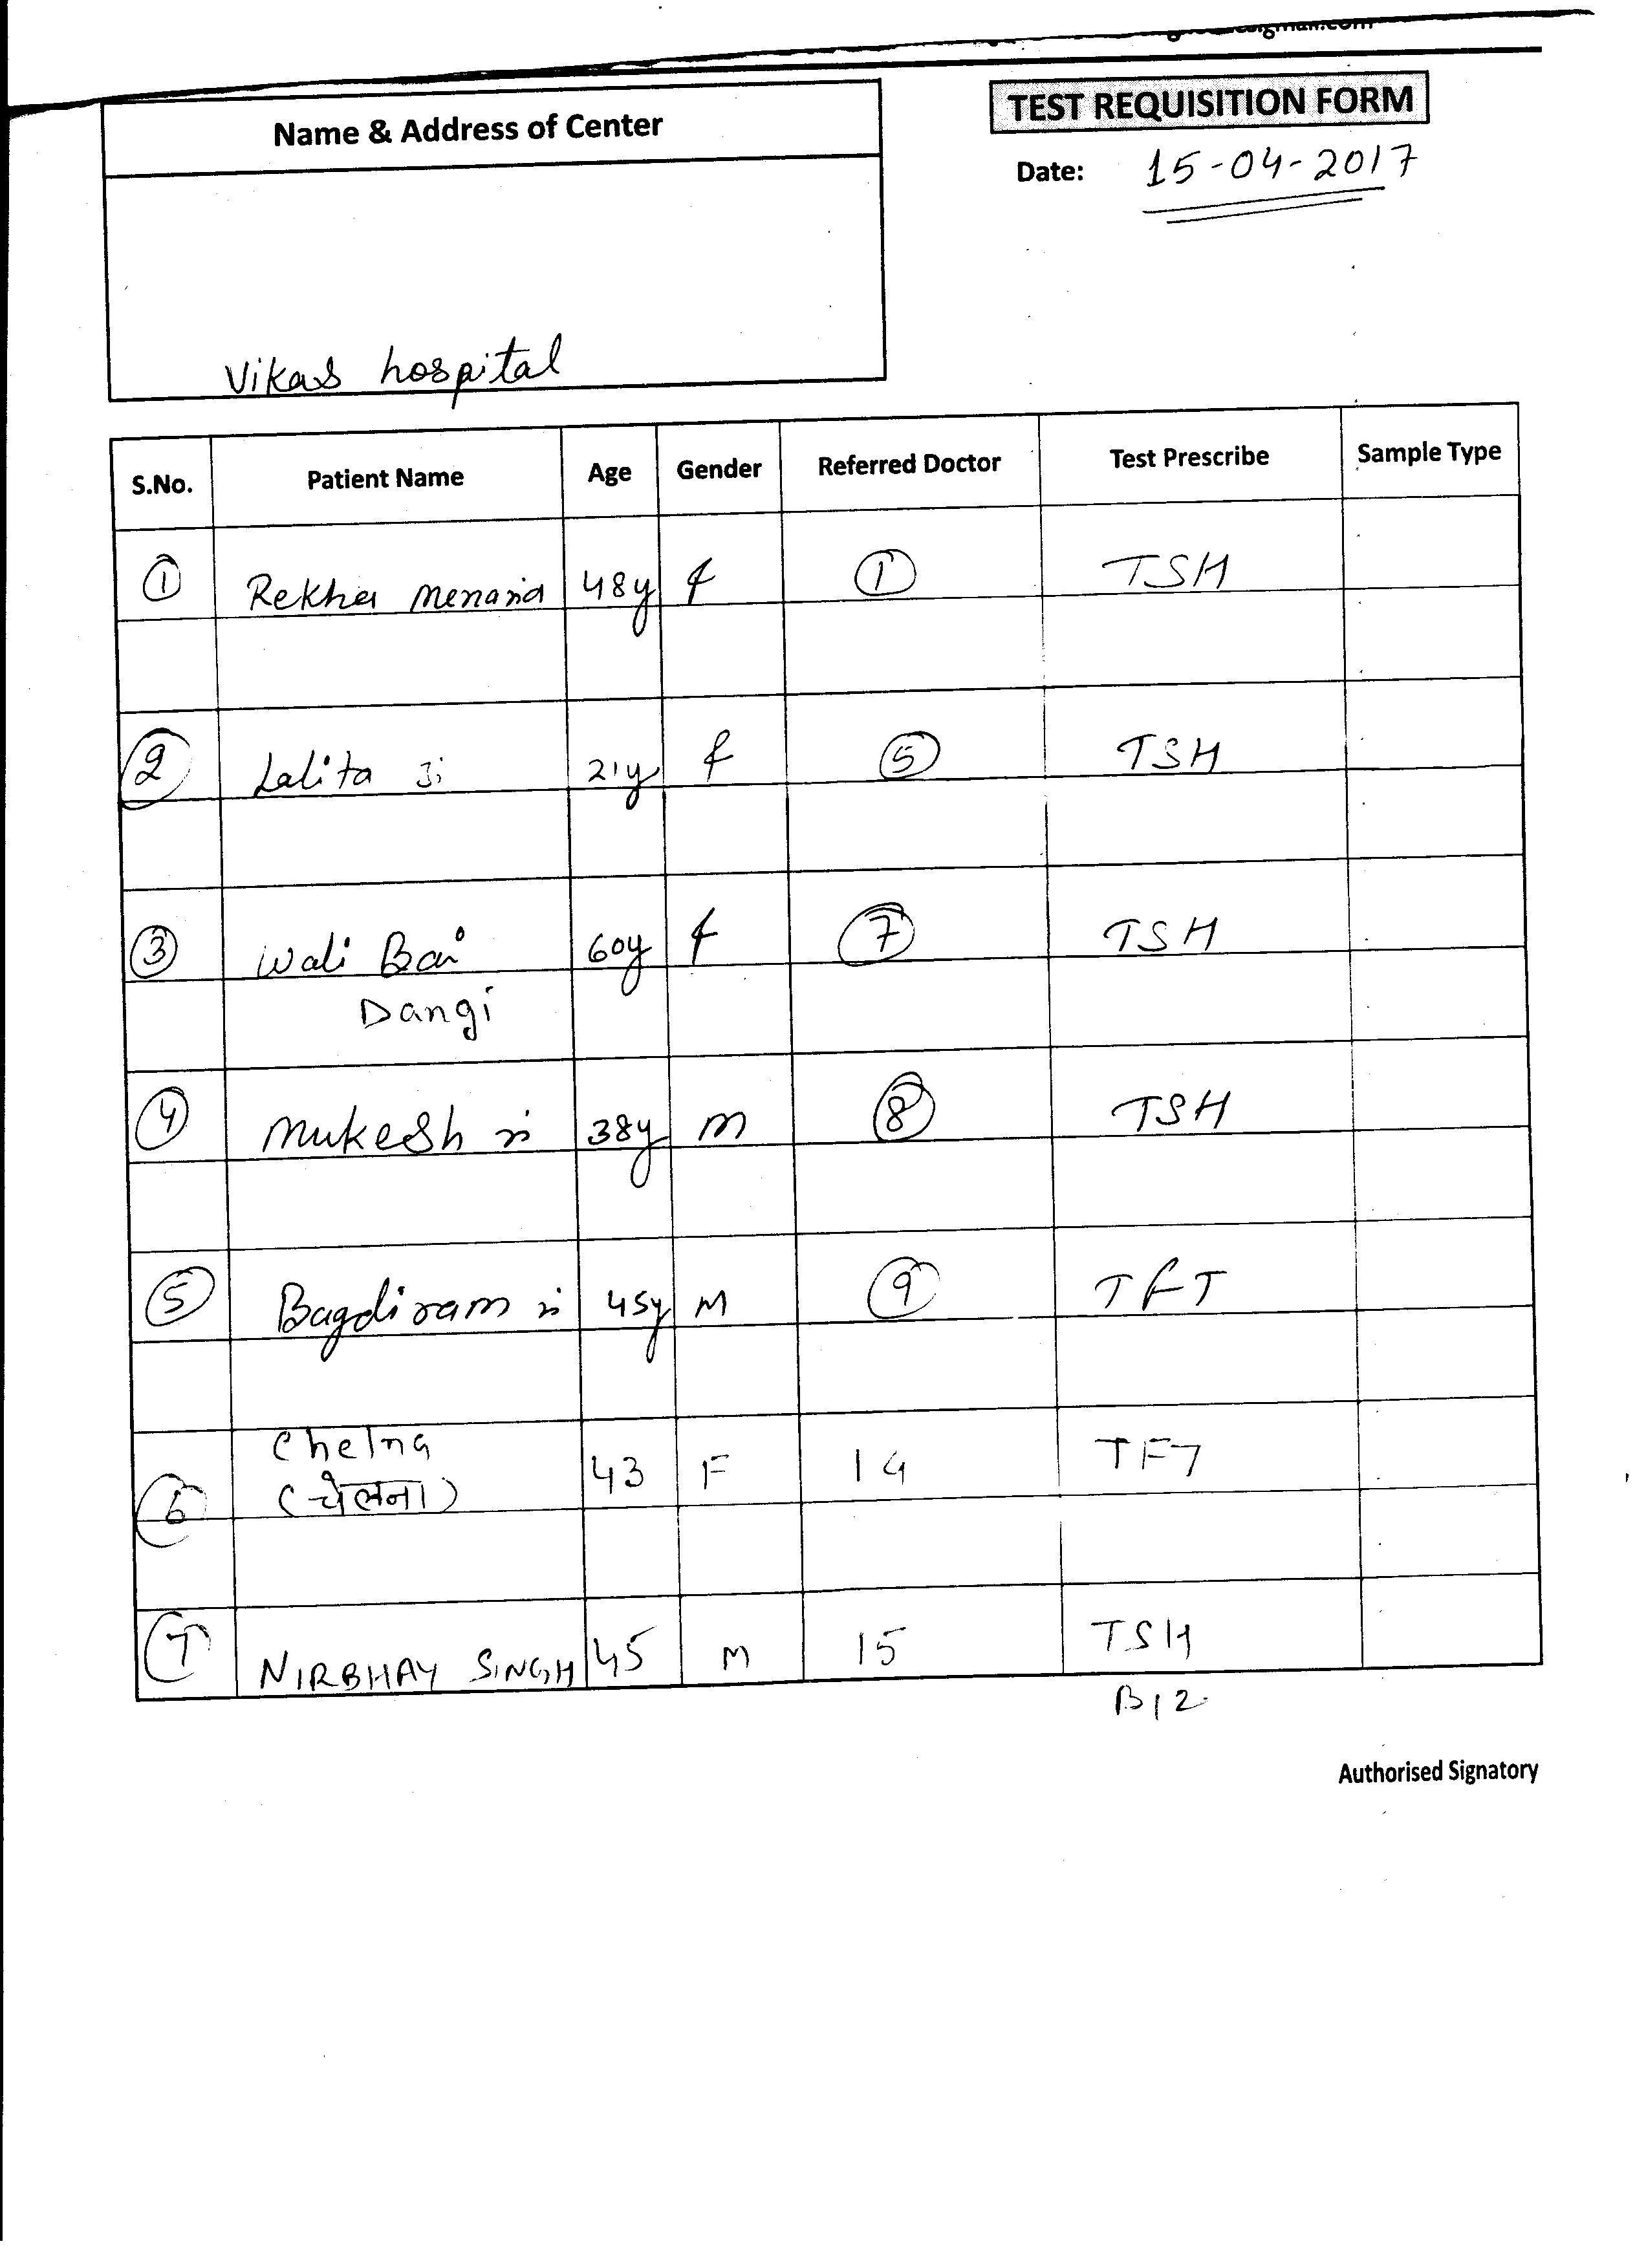 Name & Address of Center
TEST REQUISITION FORM
Date: 15-04-2017
Vikas hospital
S.No. Patient Name Age Gender Referred Doctor Test Prescribe Sample Type
1 Rekha Menaria 48y f 1 TSH
2 Lalita Ji 21y f 5 TSH
3 Wali Bai 60y f 7 TSH
Dangi
4 Mukesh Ji 38y m 8 TSH
5 Bagdiram Ji 45y M 9 TFT
Chelna
6 (चेलना) 43 F 14 TFT
7 NIRBHAY SINGH 45 M 15 TSH
B12
Authorised Signatory